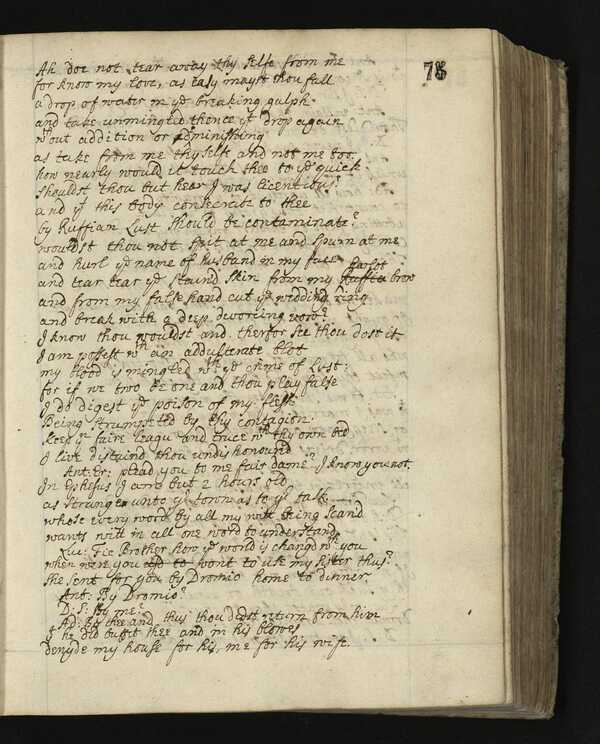 78
Ah doe not tear away thy selfe from me
for know my love, as easy mayst thou fall
a drop of water in ye breaking gulph
and take unmingled thence yt drop again
wthout addition or diminishing
as take from me thyself and not me too.
how nearly would it touch thee to ye quick
shouldst thou but hear I was licentious
and yt this body consecrate to thee
by Ruffian Lust should be contaminate?
wouldst thou not spit at me and spurn at me
and hurl ye name of husband in my face
and tear tear ye staind skin from my Harlot brow
and from my false hand cut ye wedding ring
and break with a deep devorcing vow?
I know thou wouldst and therfor see thou dost it.
I am possest wth an adducterate blot
my blood is mingled wth ye crime of Lust:
for if we two be one and thou play false
I do digest ye poison of my flesh
Being strumpeted by thy contagion.
Keep yn faire leagu and truce wth thy own bed
I live distaind thou undishonourd
Ant: Er: plead you to me fair dame? I know you not.
In Ephesus I am but 2 hours old
as strange unto yr town as to yr talk
whose every word by all my witt being scand
wants witt in all one word to understand
Luc: Fie Brother how ye world is changd wth you
when were you wont to use my sister thus?
She sent for you by Dromio home to dinner
Ant: By Dromio?
D: S: By me?
Ad: By thee and thus thou didst return from him
yt he did buffit thee and in his blowes
denyde my house for his, me for his wife.